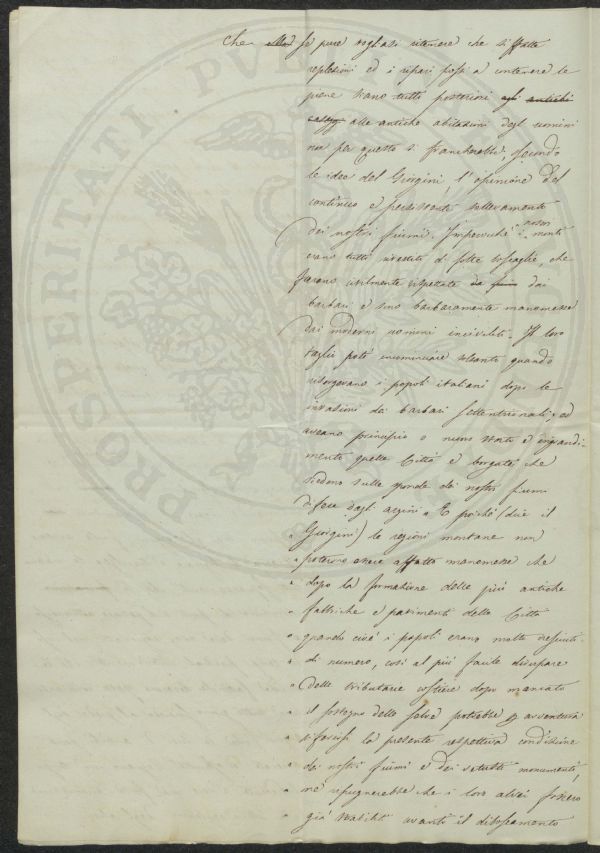 Che se pure vogliasi ritenere che siffatte
replezioni ed i ripari posti a contenere le
piene siano tutti posteriori agli antichi
alle antiche abitazioni degl uomini
non per questo si francherebbe, secondo
le idee del Giorgini, l'opinione del
continuo e persistente sollevamento
dei nostri fiumi. Imperocché i nostri monti
erano tutti rivestiti di folte boscaglie, che
furono utilmente rispettate dai
barbari, e sino barbaramente manomesse
dai moderni uomini inciviliti. Il loro
taglio poté incominciare soltanto quando
risorgevano i popoli italiani dopo le
invasioni dei barbari settentrionali; ed
aveano principio o nuovo stato e ingrandi-
mento quelle Città e borgate, che
siedono sulle sponde de' nostri fiumi
difese dagli argini. " E poiché (dice il
" Giorgini) le regioni montane non
" poterono essere affatto manomesse che
" dopo la formazione delle più antiche
" fabbriche e pavimenti delle Città
" quando cioè i popoli erano molto cresciuti
" di numero, così al più facile dirupare
" delle tributarie costiere dopo mancato
" il sostegno delle selve potrebbe per avventura
" rifarsi la presente rispettiva condizione
" dei nostri fiumi e dei vetusti monumenti,
" né repugnerebbe che i loro alvei fossero
" già stabiliti avanti il disboscamento
PROSPERITATI PVBL